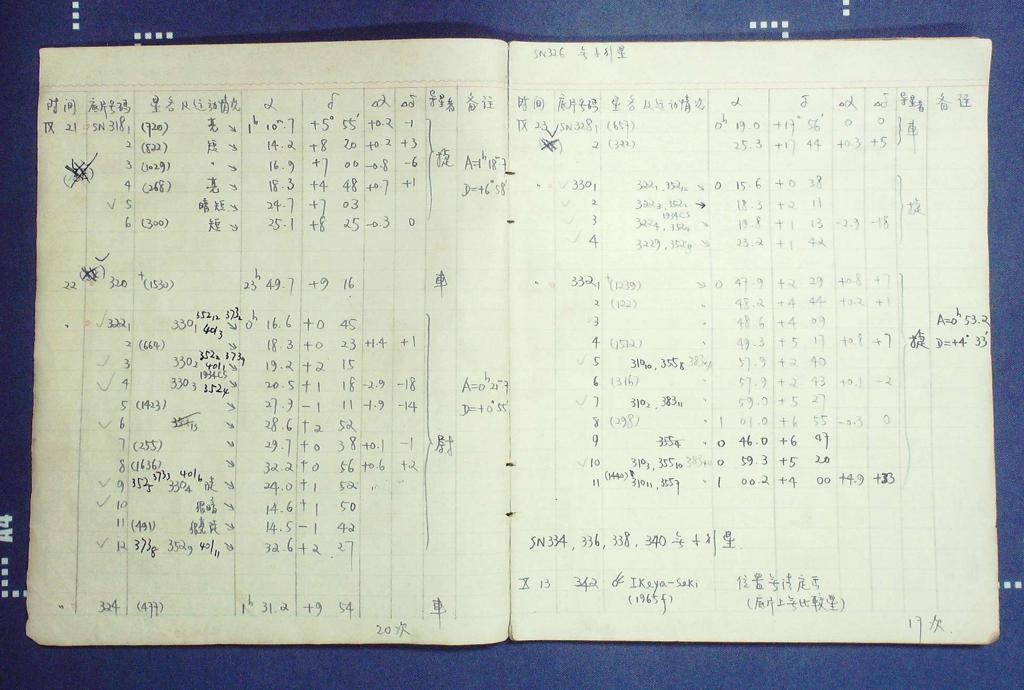 时间 底片号码 星名及运动情况 α δ Δα Δδ 导星者 备注
IX 21 SN318₁ (720) 亮 ↘ 1ʰ 10ᵐ.7 +5° 55′ +0.2 -1
2 (822) 短 ↘ 14.2 +8 20 +0.2 +3
3 (1029) " ↘ 16.9 +7 00 -0.8 -6 A=1ʰ18ᵐ7
4 (268) 亮 ↘ 18.3 +4 48 +0.7 +1 D=+6°58′
✓ 5 暗短 ↘ 24.7 +7 03
6 (300) 短 ↘ 25.1 +8 25 -0.3 0
22 320 (1530) 23ʰ 49.7 +9 16 車
" ✓ 322₁ 330₁ 352₁₂ 373₂ 401₃ ↘ 0ʰ 16.6 +0 45
2 (664) ↘ 18.3 +0 23 +1.4 +1
✓ 3 330₂ 352₂ 373₉ 401₁ ↘ 19.2 +2 15
✓ 4 330₃ 1934CS 352₄ ↘ 20.5 +1 18 -2.9 -18 A=0ʰ21ᵐ7
5 (1423) ↘ 27.9 -1 11 -1.9 -14 D=+0°55′
✓ 6 ↘ 28.6 +2 52
7 (255) ↘ 29.7 +0 38 +0.1 -1
8 (1636) ↘ 32.2 +0 56 +0.6 +2
✓ 9 352₅ 373₃ 330₄ 401₆ ↘ 24.0 +1 52
✓ 10 ↘ 14.6 +1 50
11 (491) ↘ 14.5 -1 42
✓ 12 373₈ 352₉ 401₁₁ ↘ 32.6 +2 27
" 324 (477) 1ʰ 31.2 +9 54 車
20次
SN326 无小行星
时间 底片号码 星名及运动情况 α δ Δα Δδ 导星者 备注
IX 23 SN328₁ (657) 0ʰ 19.0 +17° 56′ 0 0 車
2 (322) 25.3 +17 44 +0.3 +5
" ✓ 330₁ 322₁, 352₁₂ ↘ 0 15.6 +0 38
✓ 2 322₃, 352₂ → 18.3 +2 11
3 322₄, 1934CS 352₄ ↘ 19.8 +1 13 -2.9 -18
✓ 4 322₉, 352₅ ↘ 23.2 +1 42
" 332₁ (1239) ↘ 0 47.9 +2 29 +0.8 +7
2 (122) " 48.2 +4 44 +0.2 +1
3 " 48.6 +4 09 A=0ʰ53.2
4 (1512) " 49.3 +5 17 +0.8 +7 D=+4°33′
✓ 5 310₁₀, 355₈ 57.9 +2 40
6 (316) " 57.9 +2 43 +0.1 -2
✓ 7 310₂, 383₁₁ " 59.0 +5 27
8 (298) " 1 01.0 +6 55 -0.3 0
9 355₄ 0 46.0 +6 47
✓ 10 310₃, 355₁₀ 0 59.3 +5 20
11 (1440) 310₁₁, 355₇ 1 00.2 +4 00 +4.9 +33
SN334, 336, 338, 340 无小行星
X 13 342 Ikeya-Seki 位置无法定出
(1965f) (底片上无比較星)
17次